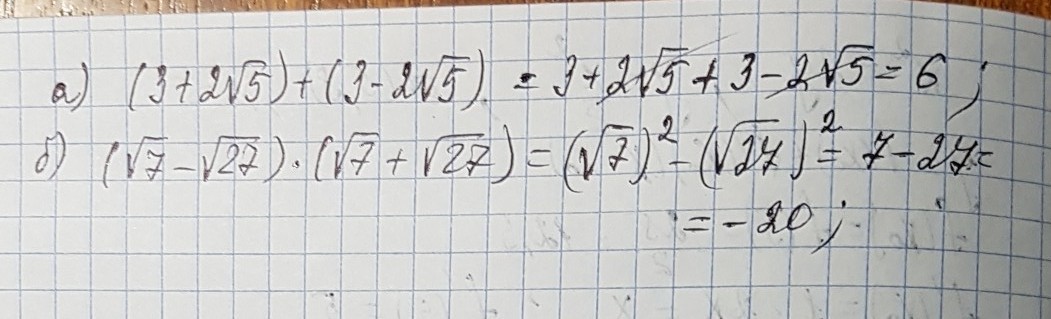 а) (3+2√5)+(3-2√5) = 3+2√5+3-2√5=6;
б) (√7-√27)·(√7+√27)=(√7)²-(√27)²=7-27=
=-20;